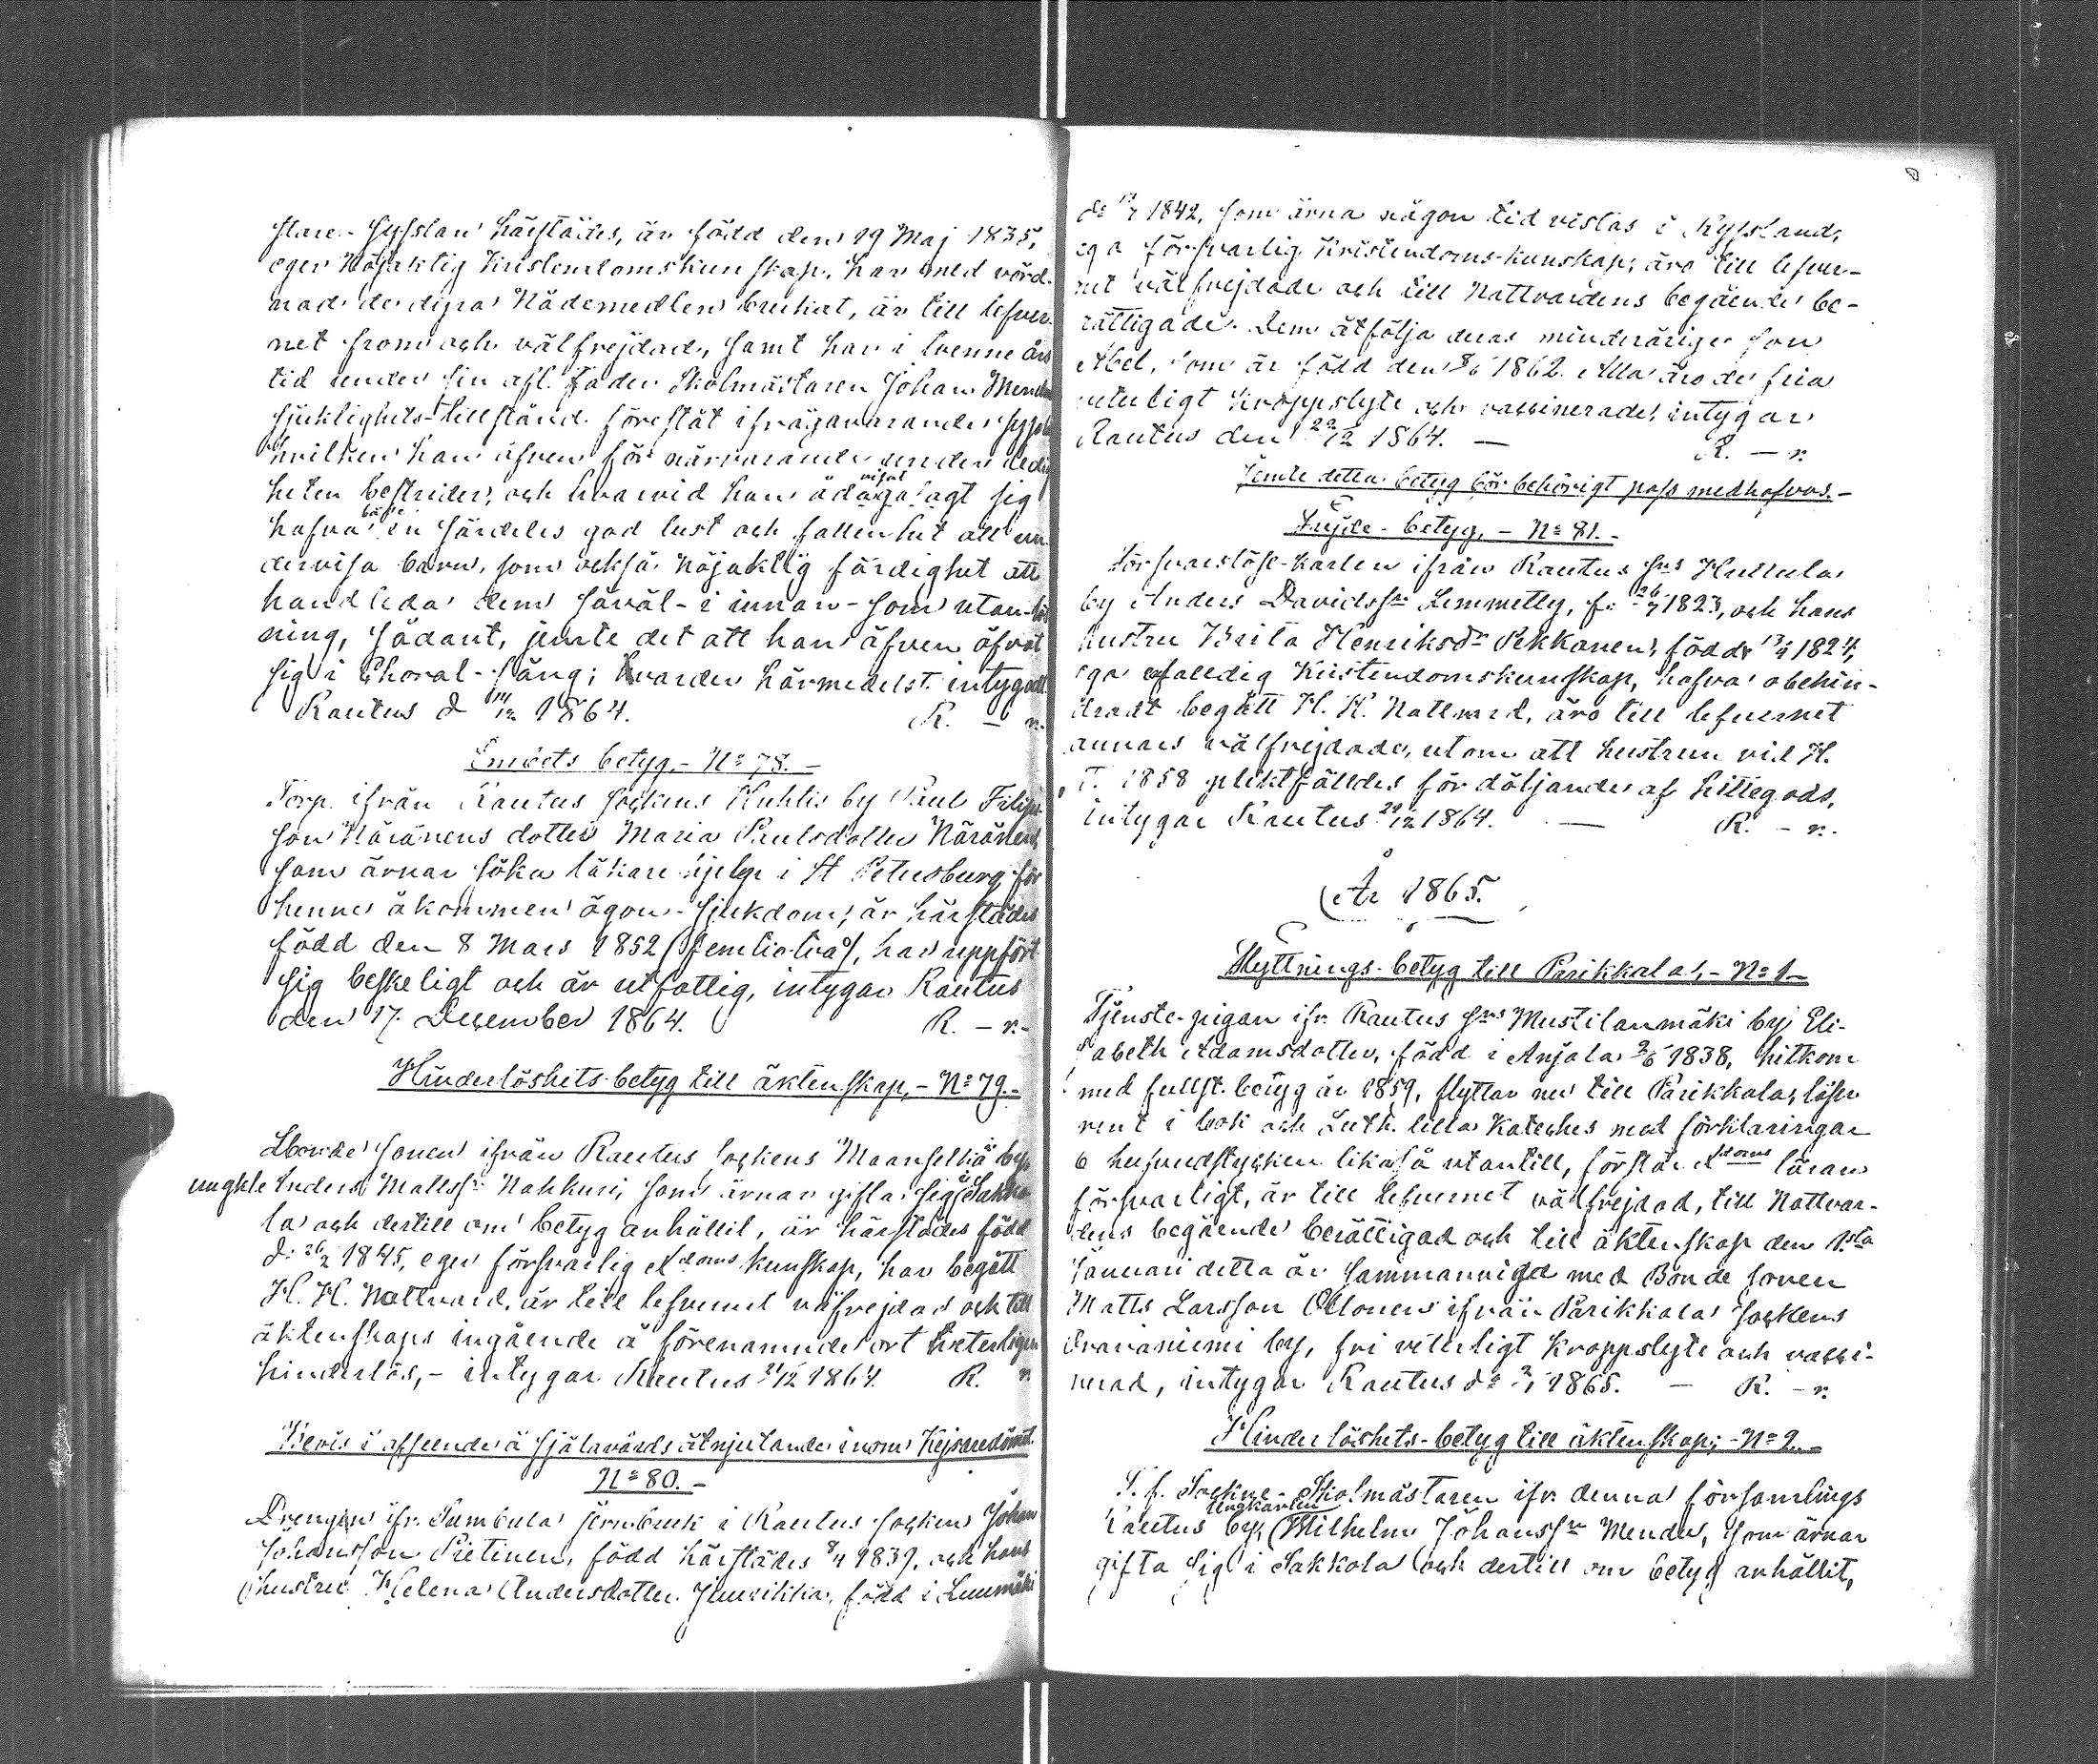 stare-sysslan härstädes, är född den 19 Maj 1835,
eger Nöjaktig Kristendomskunskap, har med vörd-
nad de dyra Nådemedlen brukat, är till lefver-
net from och välfrejdad, samt har i tvenne års
tid under sin afl. fader Skolmästaren Johan
sjuklighets-tillstånd förestått ifrågavarande
hvilken han äfven för närvarande under
heten bestrider, och hvarvid han ådagalagt sig
hafva en särdeles god lust och fallenhet att un-
dervisa barn, som också nöjaktig färdighet att
handleda dem såväl i innan- som utan-läs
ning, sådant, jemte det att han äfven öfvat
sig i Choral-sång; varder härmedelst intygadt.
Rautus d 14/12 1864. R. - n.
betyg, - No 78. -
Torp. ifrån Rautus sockens Huhtis by Paul Filips
son Näränens dotter Maria Paulsdotter Näränen,
som ärnar söka läkare hjelp i St Petersburg för
henne åkommen ögon-sjukdom, är härstädes
född den 8 Mars 1852 (femtiotvå), har uppfört
sig beskeligt och är utfattig, intygar Rautus
den 17. December 1864. R. - n.-
Hinderlöshets-betyg till äktenskap, - No 79.-
Bonde sonen ifrån Rautus sockens Maanselkä by,
ungkle Anders Mattss:n Nahkuri, som ärnar gifta sig i Sakko
la och dertill om betyg anhållit, är härstädes född
d: 26/2 1845, eger försvarlig Xdoms kunskap, har begått
H. H. Nattvard, är till lefvernet väfrejdad och till
äktenskaps ingående å förenämnde ort veterligen
hinderlös, - intygar Rautus 21/12 1864. R. n
Bevis i afseende å själavårds åtnjutande inom Kejsaredömet.
No 80. -
Drengen ifr. Sumbula jernbruk i Rautus socken Johan
Johansson Pietinen, född härstädes 8/11 1839, och hans
hustru Helena Andersdotter född i Luumäki
d: 17/7 1842, som ärna någon tid vistas i Ryssland,
ega försvarlig Kristendoms-kunskap; äro till lefver-
net välfrejdade och till Nattvardens begående be-
rättigade. Dem åtfölja deras minderårige son
Abel, som är född den 8/6 1862. Alla äro de fria
veterligt kroppslyte och vaccinerade, intygar
Rautus den 22/12 1864. — R. — n.
Jemte detta betyg bör behörigt pass medhafvas. -
Lejde-betyg, - No 81. -
Försvarslöse-karlen ifrån Rautus s:ns Huttula
by Anders Davidss:n Lemmetty, f. 26/7 1823, och hans
hustru Brita Henriksd:r Pekkanen, född 13/4 1824,
ega Kristendomskunskap, hafva obehin-
dradt begått H. H. Nattvard, äro till lefvernet
annars välfrejdade, utom att hustrun vid H.
T. 1858 pliktfälldes för döljande af hittegods,
intygar Rautus 29/12 1864. — R. - n.
År 1865.
Flyttnings-betyg till Parikkala, - No 1 -
Tjenste-pigan ifr. Rautus s:ns Mustilanmäki by, Eli-
sabeth Adamsdotter, född i Anjala 2/6 1838, hitkom
med fullst. betyg år 1859, flyttar nu till Parikkala, läser
rent i bok och Luth. lilla Kateches med förklaringar
6 hufvudstycken likaså utantill, förstår Xdoms läran
försvarligt, är till lefvernet välfrejdad, till Nattvar-
dens begående berättigad och till äktenskap den 1sta
Januari detta år sammanvigd med Bonde sonen
Matts Larsson Ollonen ifrån Parikkala sockens
Oravaniemi by, fri veterligt kroppslyte och vacci-
nerad, intygar Rautus d: 2/1 1865. - R. - n.
Hinderlöshets-betyg till äktenskap; - No 2. -
T. f. Sockne-Skolmästaren ifr. denna församlings
Rautus by, Ungkarlen Wilhelm Johanss:n Mender, som ärnar
gifta sig i Sakkola och dertill om betyg anhållit,